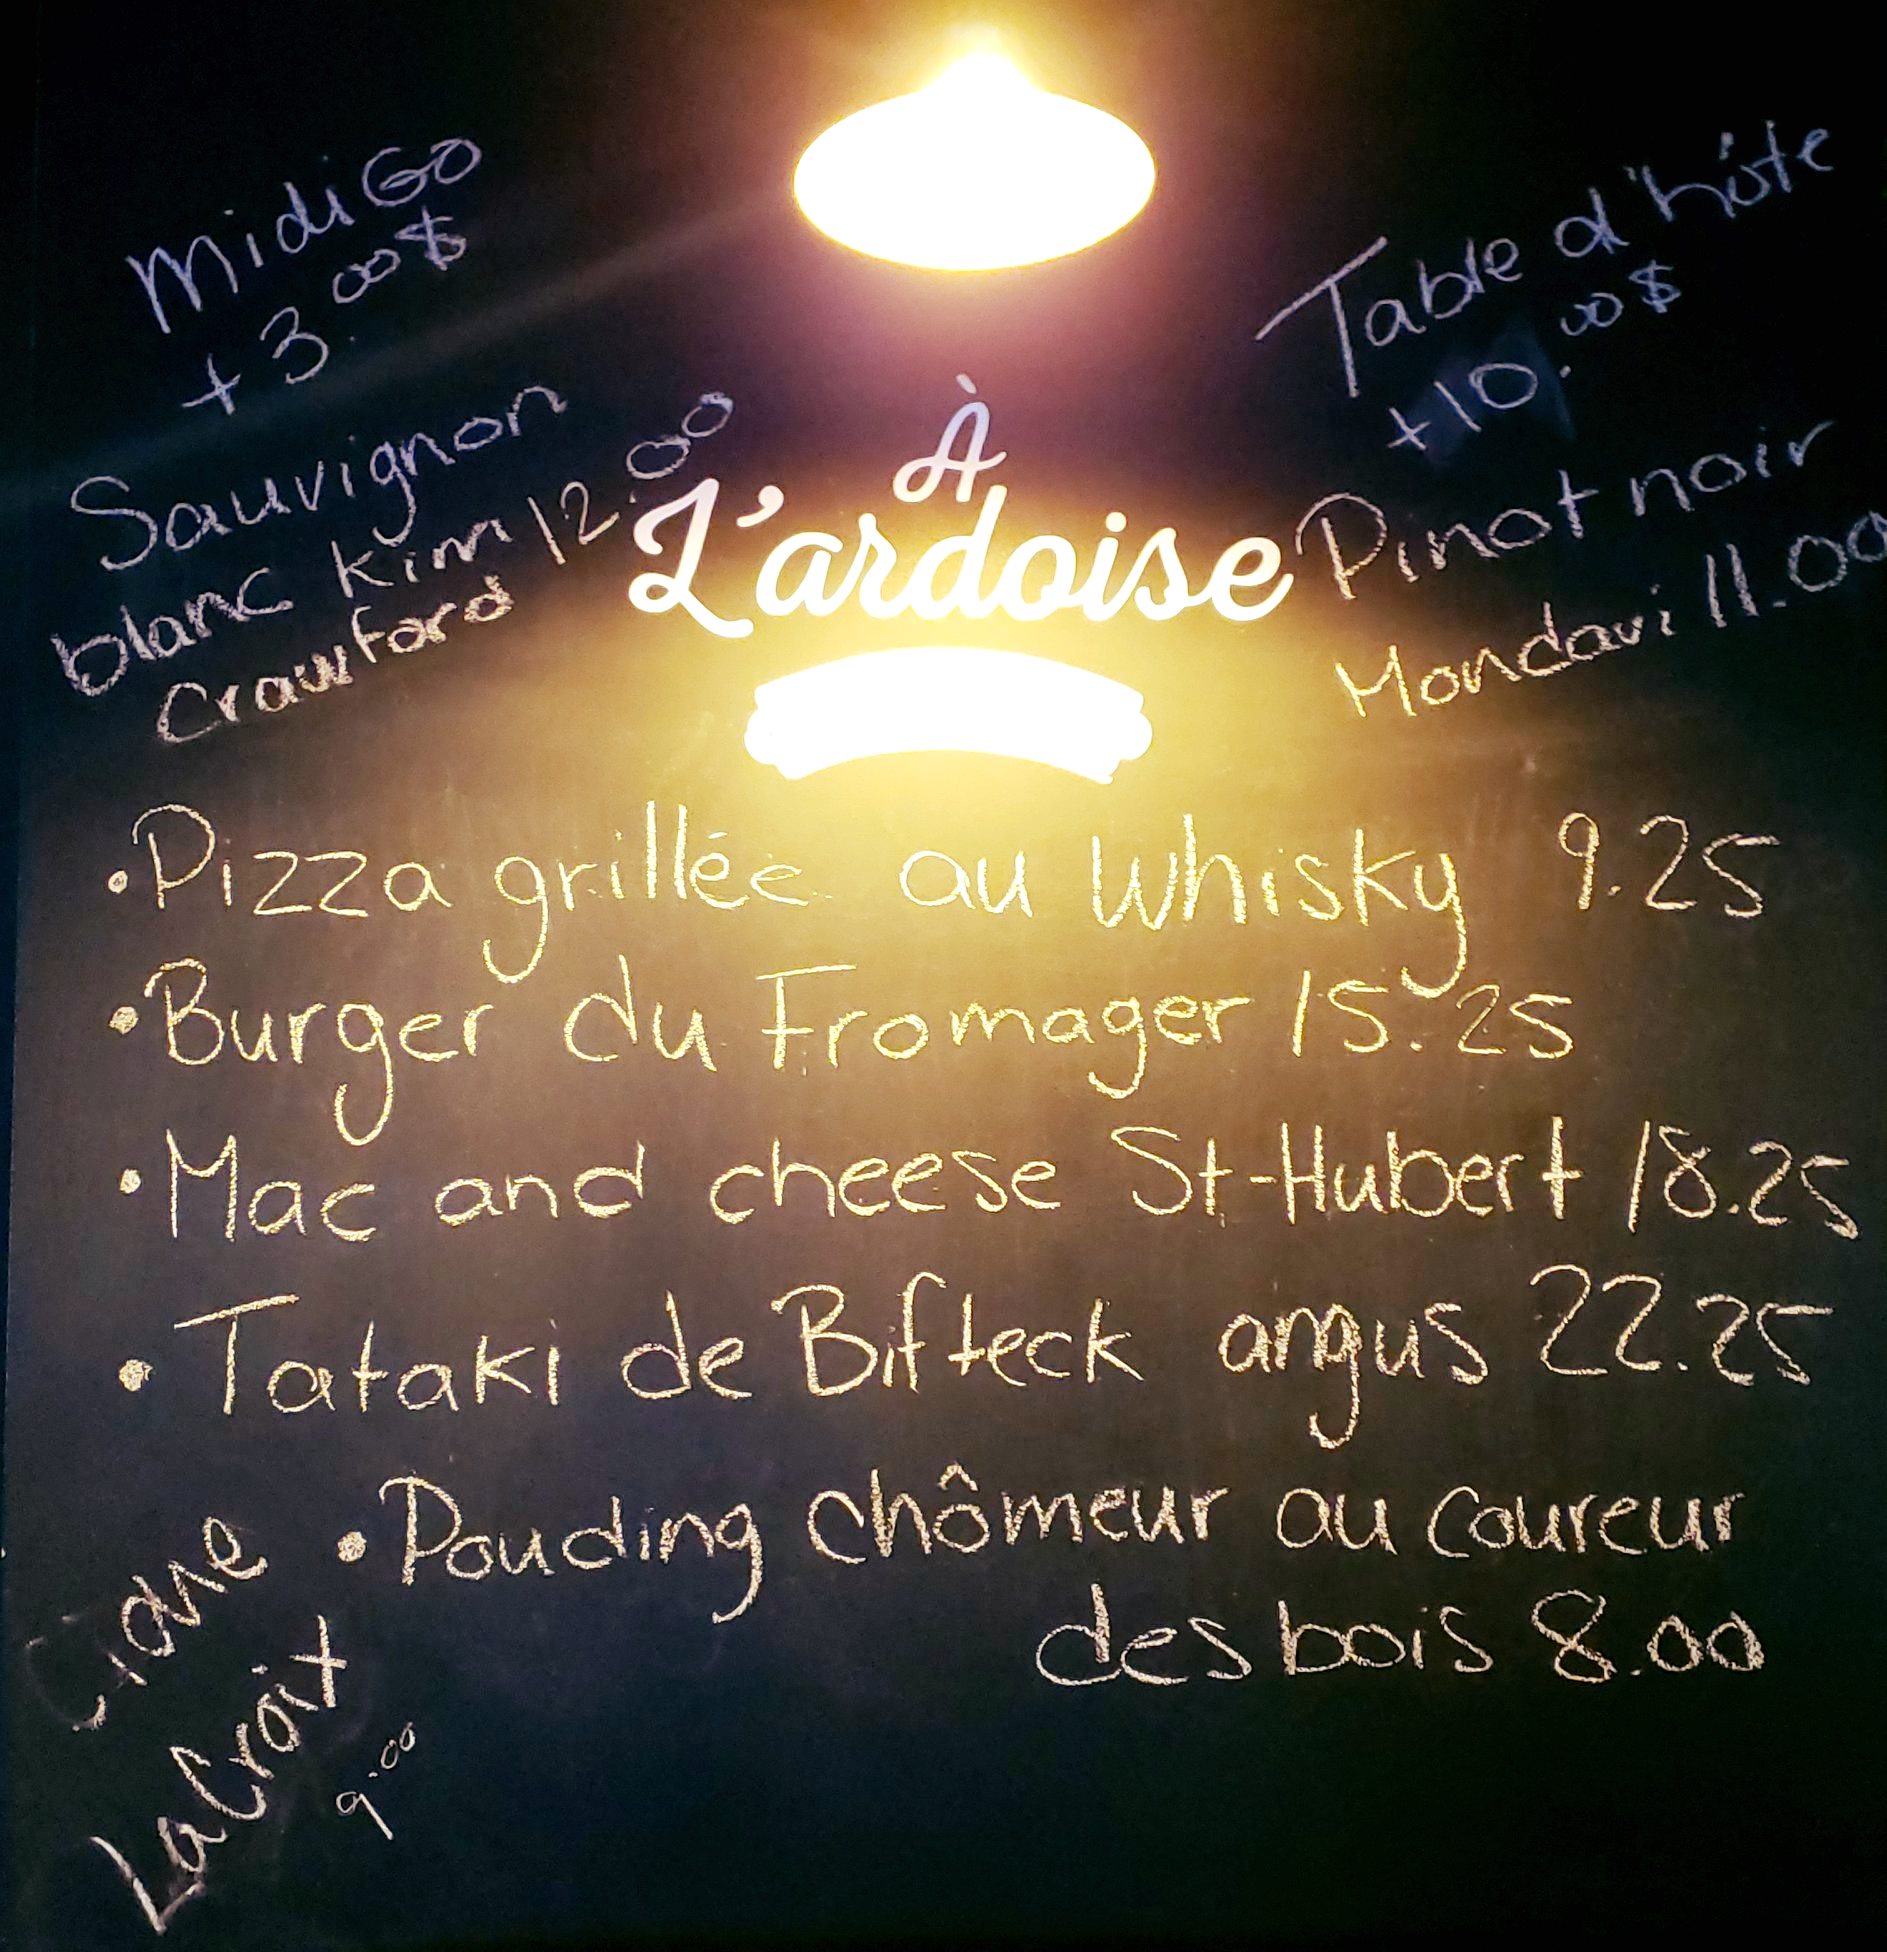 Midi GO
+3.00$
Table d'hôte
+10.00$
Sauvignon
blanc Kim 12.00
Crawford
À
L'ardoise
Pinot noir
Mondavi 11.00
•Pizza grillée au Whisky 9.25
•Burger du Fromager 15.25
•Mac and cheese St-Hubert 18.25
•Tataki de Bifteck angus 22.25
•Pouding chômeur au coureur
des bois 8.00
LaCroix
9.00